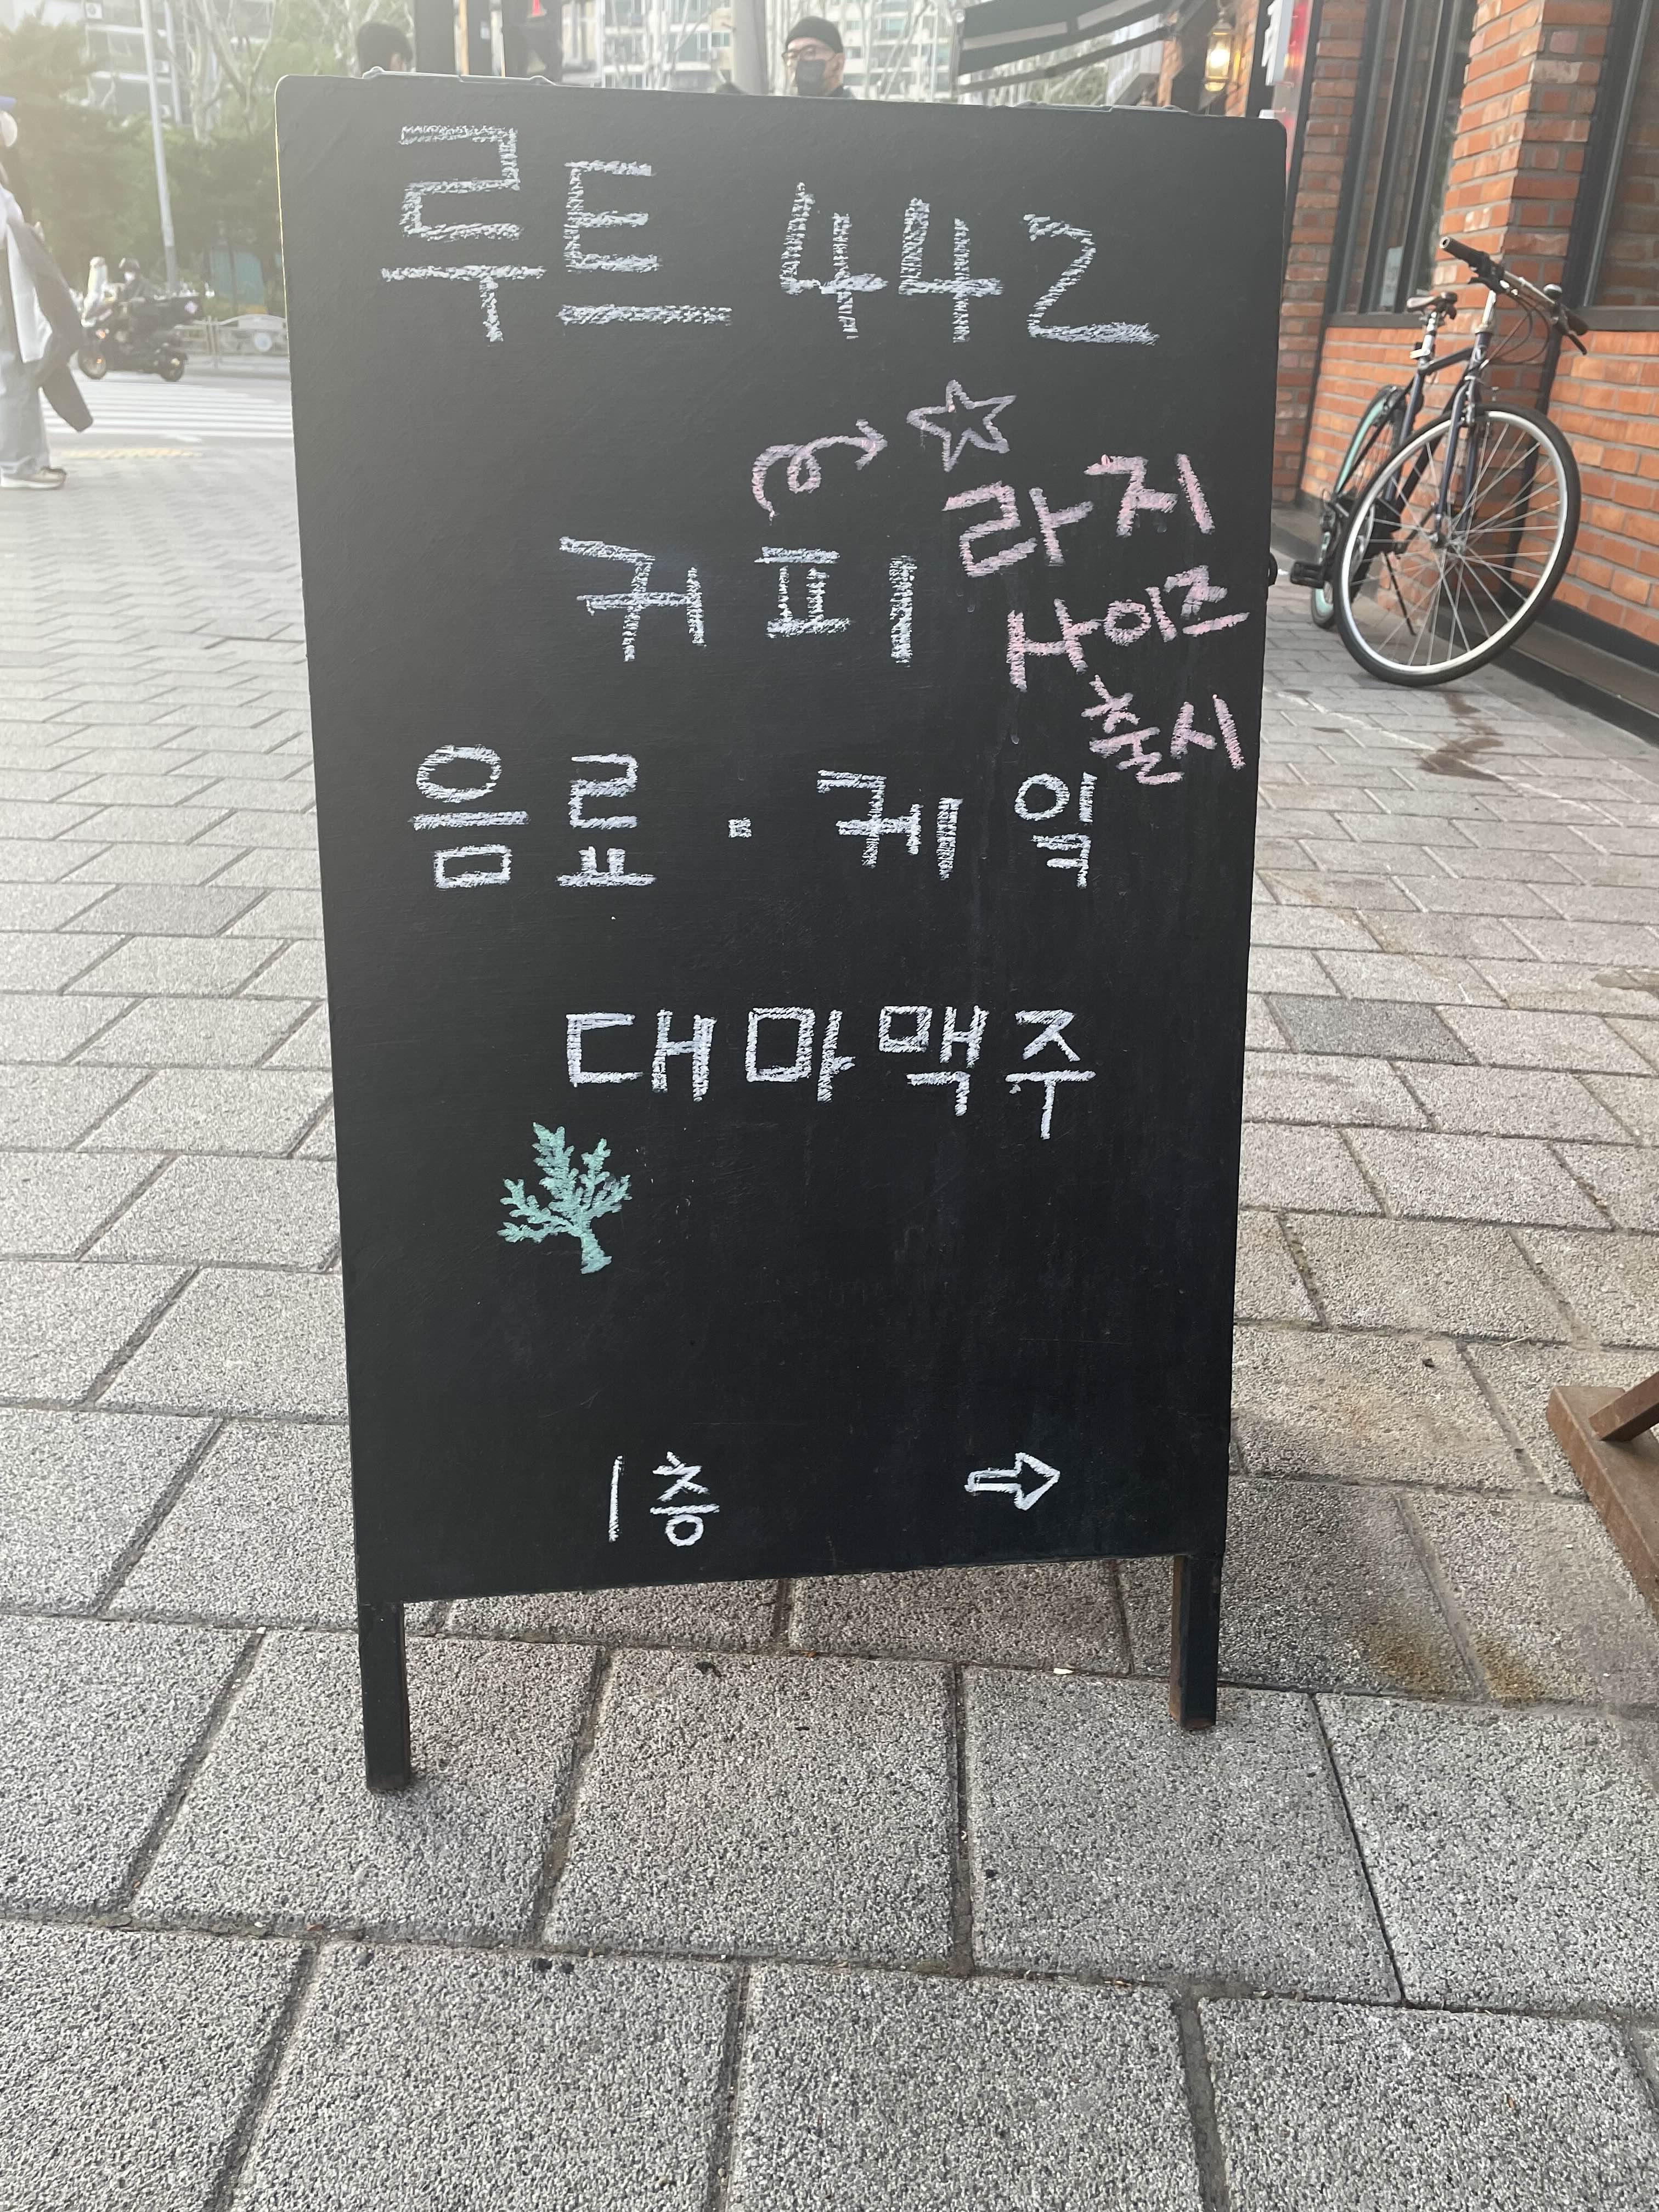 루트 442
라지
사이즈
출시
커피
음료 · 케잌
대마맥주
1층